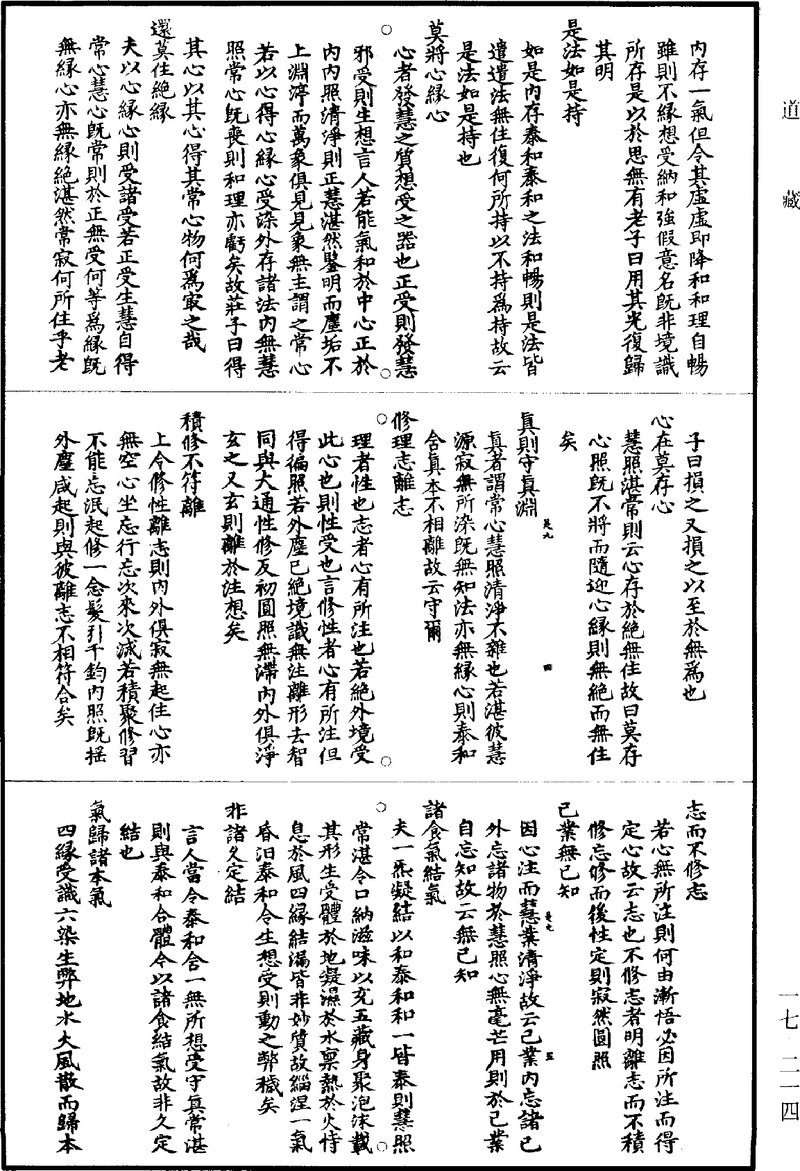 道藏
內存一氣但令其虛虛即降和和理自暢
雖則不緣想受納和強假意名既非境識
所存是以於思無有老子曰用其光復歸
其明
是法如是持
如是內存泰和泰和之法和暢則是法皆
遣遣法無住復何所持以不持爲持故云
是法如是持也
莫將心緣心
心者發慧之質想受之器也正受則發慧
邪受則生想言人若能氣和於中心正於
內內照清淨則正慧湛然鑒明而塵垢不
上淵渟而萬象俱見見象無主謂之常心
若以心得心緣心受染外存諸法內無慧
照常心既喪則和理亦虧矣故莊子曰得
其心以其心得其常心物何爲㝡之哉
還莫住絕緣
夫以心緣心則受諸受若正受生慧自得
常心慧心既常則於正無受何等爲緣既
無緣心亦無緣絕湛然常寂何所住乎老
子曰損之又損之以至於無爲也
心在莫存心
慧照湛常則云心存於絕無住故曰莫存
心照既不將而隨迎心緣則無絕而無住
矣
真則守真淵
真者謂常心慧照清淨不雜也若湛彼慧
源寂無所染既無知法亦無緣心則泰和
含真本不相離故云守爾
修理志離志
理者性也志者心有所注也若絕外境受
此心也則性受也言修性者心有所注但
得徧照若外塵已絕境識無注離形去智
同與大通性修反初圓照無滯內外俱淨
玄之又玄則離於注想矣
積修不符離
上令修性離志則內外俱寂無起住心亦
無空心坐忘行忘次來次滅若積聚修習
不能忘泯起修一念髮引千鈞內照既搖
外塵咸起則與彼離志不相符合矣
志而不修志
若心無所注則何由漸悟必因所注而得
定心故云志也不修志者明離志而不積
修忘修而後性定則寂然圓照
己業無己知
因心注而慧業清淨故云己業內忘諸己
外忘諸物於慧照心無毫芒用則於己業
自忘知故云無己知
諸食氣結氣
夫一炁凝結以和泰和和一皆泰則慧照
常湛令口納滋味以充五藏身聚泡沫載
其形生受體於地凝濕於水稟熱於火恃
息於風四緣結漏皆非妙質故緇涅一氣
昏汩泰和令生想受則動之弊穢矣
非諸久定結
言人當令泰和含一無所想受守真常湛
則與泰和合體今以諸食結氣故非久定
結也
氣歸諸本氣
四緣受識六染生弊地水火風散而歸本
是九 四
是九 五
一七 二一四